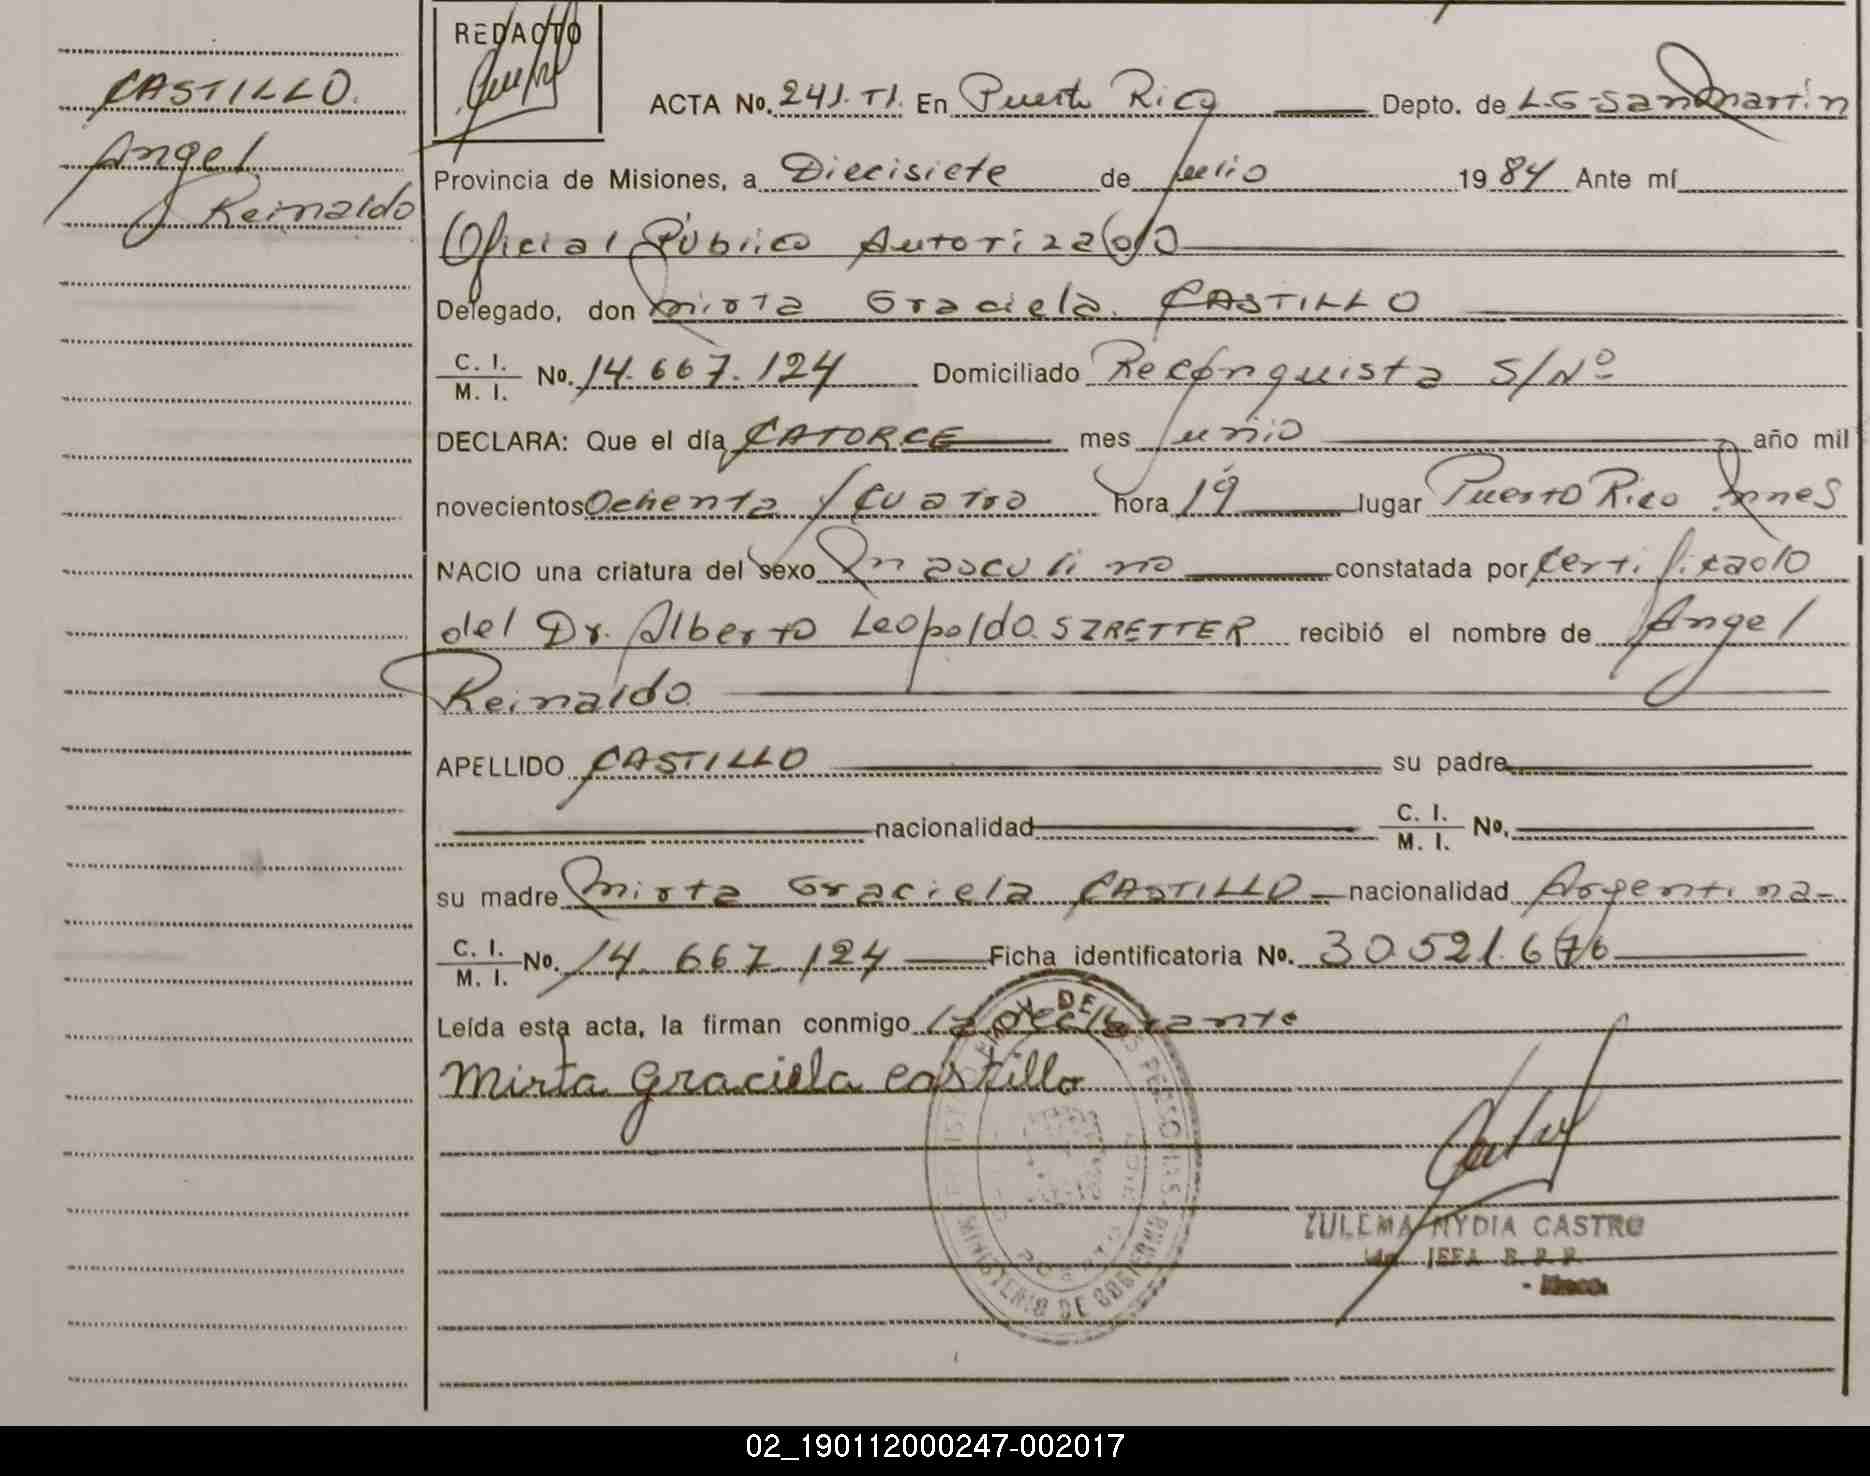 CASTILLO.
Angel
Reinaldo
REDACTO
ACTA No. 241. T1. En Puerto Rico Depto. de L.G-San Martín
Provincia de Misiones, a Diecisiete de Julio 1984 Ante mí
Oficial Público Autorizado
Delegado, don Mirta Graciela CASTILLO
C. I.
M. I. No. 14.667.124 Domiciliado Reconquista S/Nº
DECLARA: Que el día CATORCE mes Junio año mil
novecientos Ochenta y Cuatro hora 19 lugar Puerto Rico Mnes
NACIO una criatura del sexo Masculino constatada por Certificado
del Dr. Alberto Leopoldo SZRETTER recibió el nombre de Angel
Reinaldo
APELLIDO CASTILLO su padre
nacionalidad C. I.
M. I. No.
su madre Mirta Graciela CASTILLO nacionalidad Argentina-
C. I.
M. I. No. 14.667.124 Ficha identificatoria No. 30.521.676
Leída esta acta, la firman conmigo la declarante
Mirta Graciela Castillo
MINISTERIO DE GOBIERNO
ZULEMA NYDIA CASTRO
JEFA R.P.P.
02_190112000247-002017